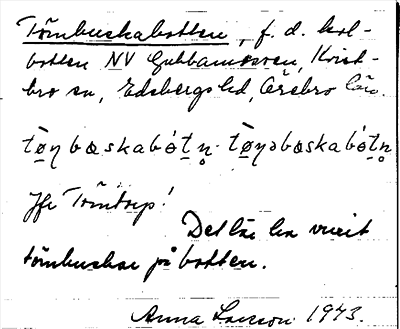 Törnbuskabotten, f. d. kol-
botten NV Gubbamossen, Kvist-
bro sn, Edsbergs hd, Örebro län.
tø̱ṉbɶskabót̲n̥. tø̱ṉəbɶskabót̲n̥
Jfr Törntorp!
Det lär ha vuxit
törnbuskar på botten.
Anna Larsson 1943.